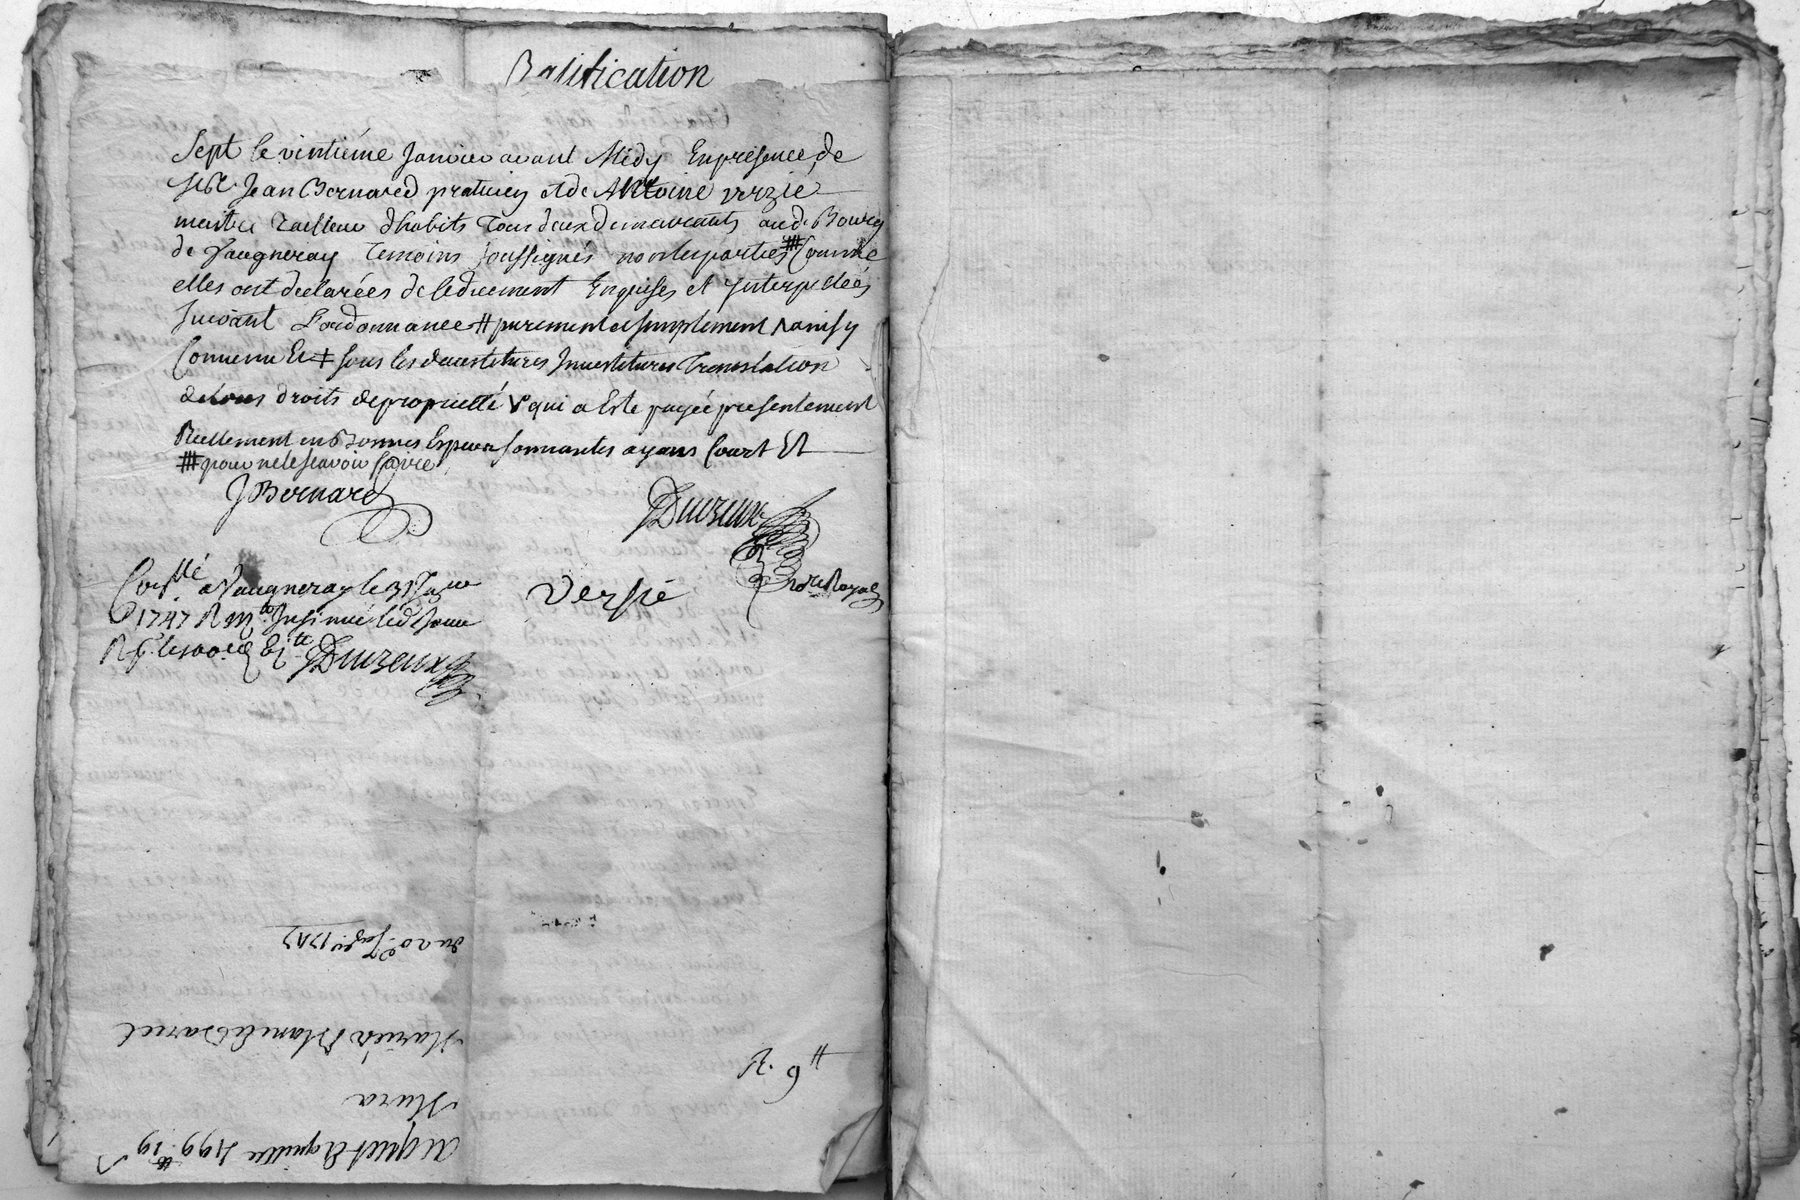 Ratification
Sept le vintiéme Janvier avant Midy En présence de
Jean Bernard praticien et de Antoine verzie
maitre Tailleur dhabits Tous deux demeurants aud. Bourg
de Vaugneray Temoins soussignés non les parties # Comme
elles ont declarées de ce duement Enquises et Interpellées
suivant L'ordonnance # purement et simplement
Convenu Et + sous les devestitures Investitures Translation
de tous droits de proprietté qui a Este payée presentement
Reellement en Bonnes Especes sonnantes ayans Court Et
# pour ne le scavoir faire
JBernard
Duizeux
Note Royal
Versié
Conllé a Vaugneray le 31 Janer
1747 R Insinué led Jour
Duizeux
du 20e Janv. 1747
Mariés Blanc & Barret
Mura
acquet 499
6